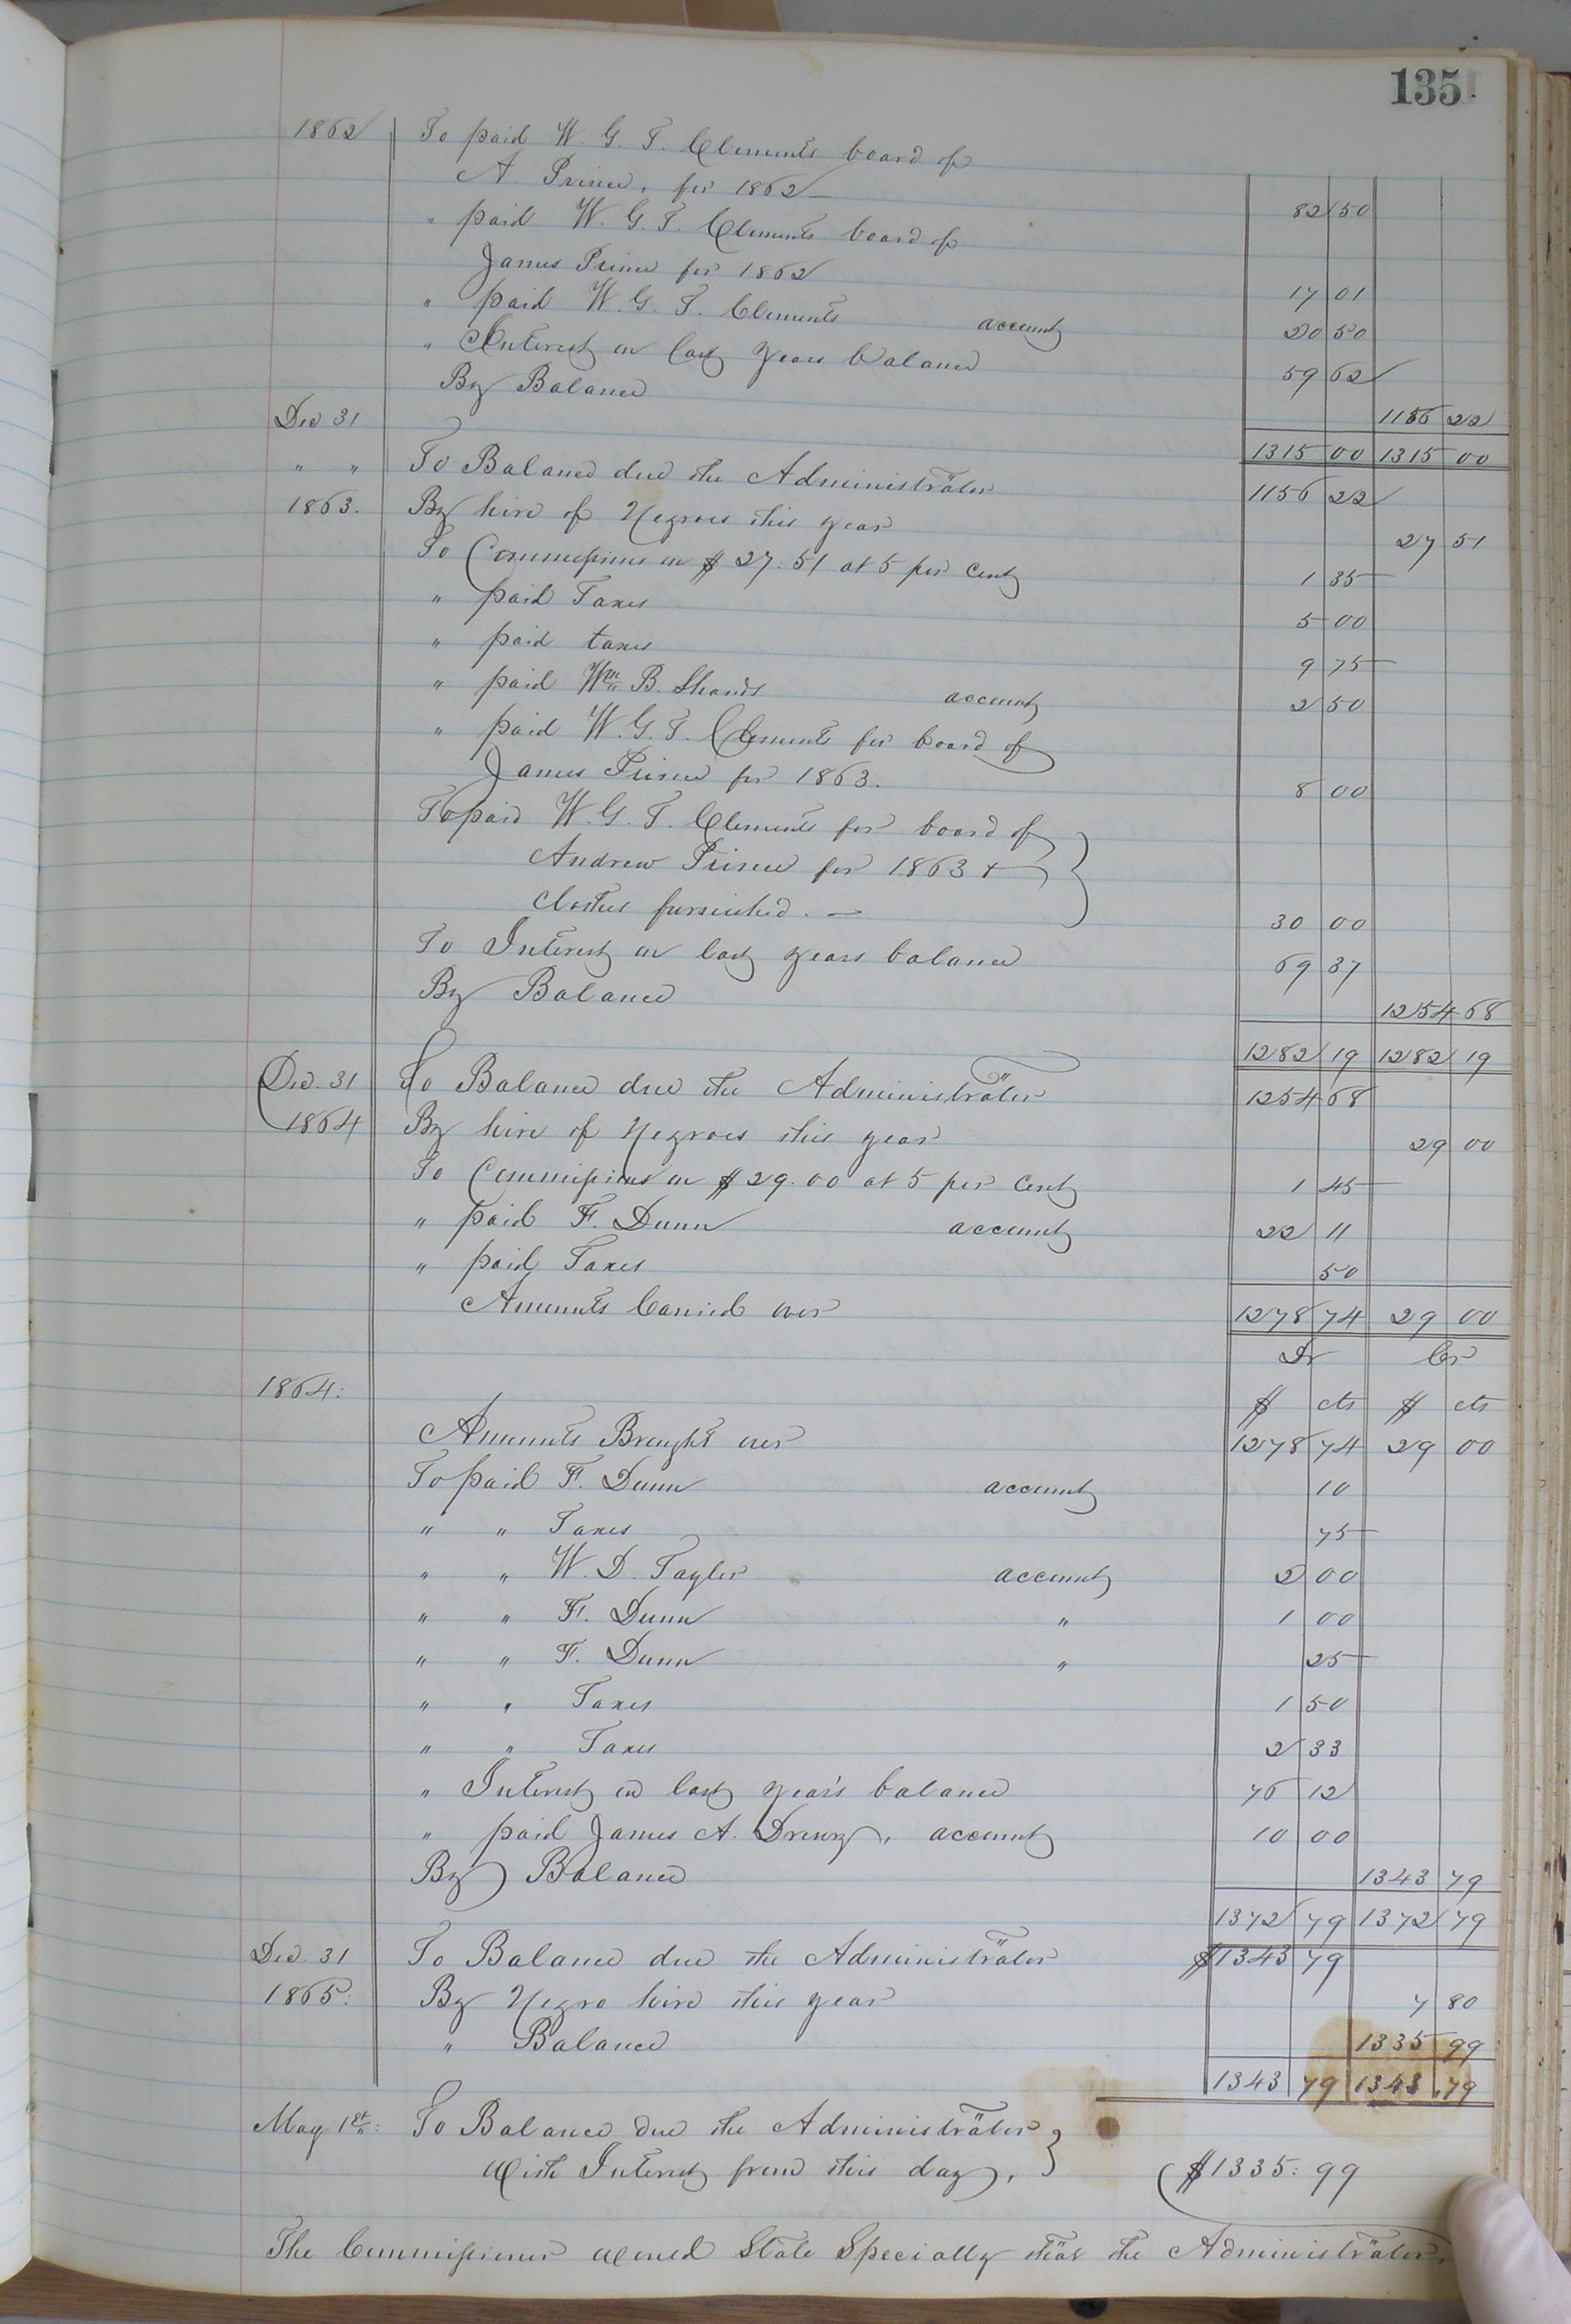 135
1862 To paid W. G. T. Clements board of
A. Prince, for 1862 82 50
" paid W. G. T. Clements board of
James Prince for 1862 17 01
" paid W. G. T. Clements account 20 50
" Interest on last years balance 59 62
By Balance 1156 22
Dec 31 1315 00 1315 00
" " To Balance due the Administrator 1156 22
1863. By hire of Negroes this year 27 51
To Commissions on $27.51 at 5 per cent 1 35
" paid Taxes 5 00
" paid taxes 9 75
" paid Wm B. Shands account 2 50
" paid W. G. T. Clements for board of
James Prince for 1863. 8 00
To paid W. G. T. Clements for board of
Andrew Prince for 1863 +
clothes furnished. 30 00
To Interest on last years balance 69 37
By Balance 1254 68
1282 19 1282 19
Dec. 31 To Balance due the Administrator 1254 68
1864 By hire of Negroes this year 29 00
To Commissions on $29.00 at 5 per cent 1 45
" paid F. Dunn account 22 11
" paid Taxes 50
Amounts Carried over 1278 74 29 00
Dr Cr
1864: $ cts $ cts
Amounts Brought over 1278 74 29 00
To paid F. Dunn account 10
" " Taxes 75
" " W. D. Taylor account 2 00
" " F. Dunn " 1 00
" " F. Dunn " 25
" " Taxes 1 50
" " Taxes 2 33
" Interest on last year's balance 76 12
" paid James A. Drewry, account 10 00
By Balance 1343 79
1372 79 1372 79
Dec. 31 To Balance due the Administrator $1343 79
1865: By Negro hire this year 7 80
" Balance 1335 99
1343 79 1343 79
May 1st: To Balance due the Administrator
with Interest from this day, $1335:99
The Commissioner would State Specially that the Administrator,